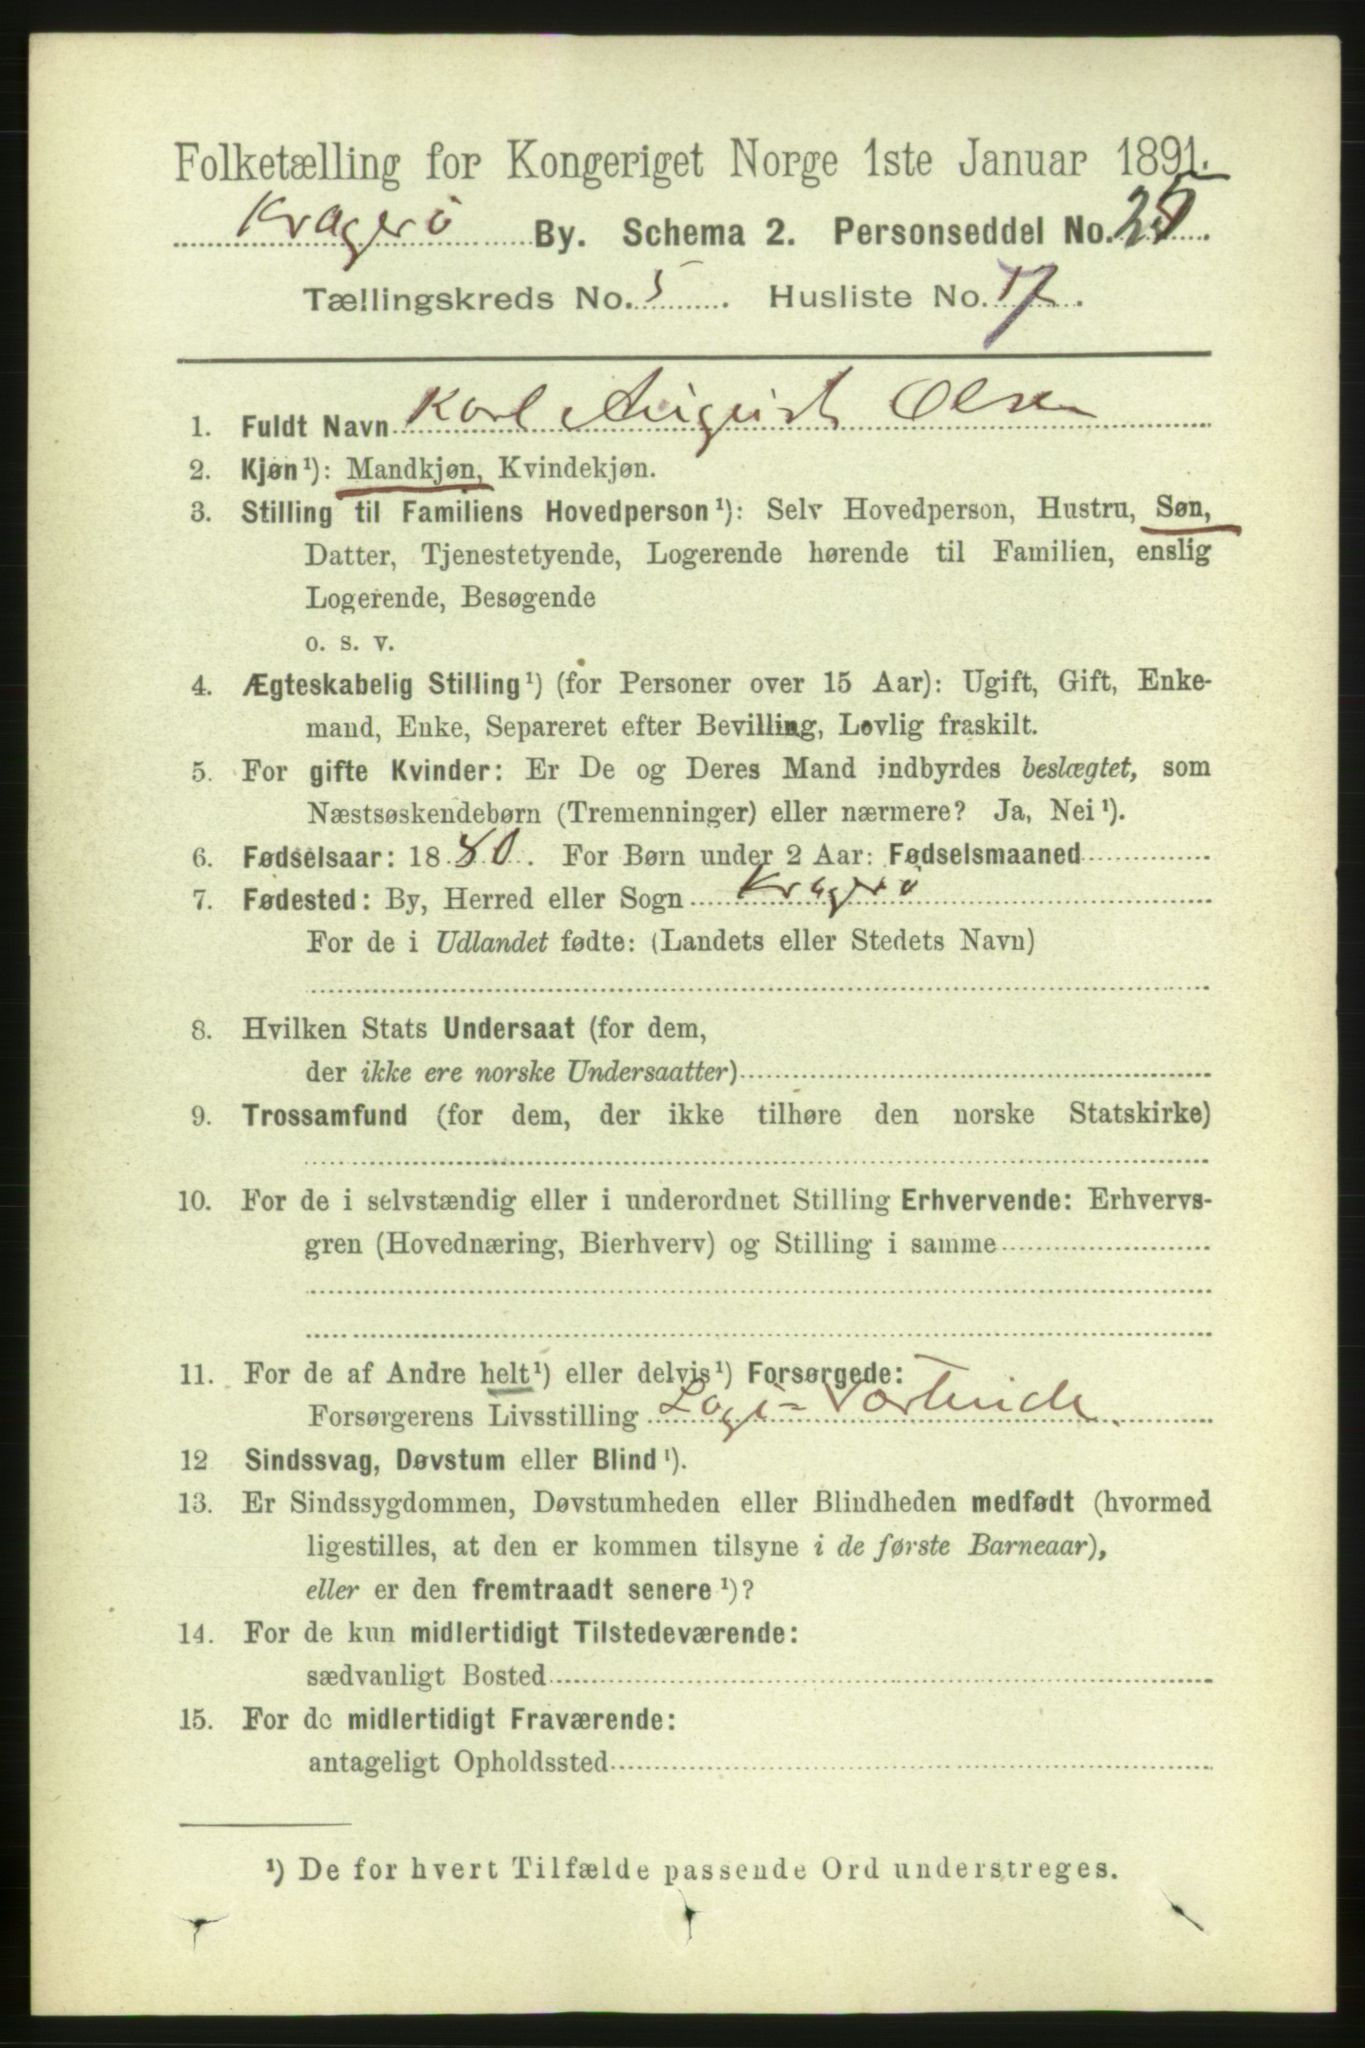 Folketælling for Kongeriget Norge 1ste Januar 1891.
Kragerø By. Schema 2. Personseddel No.
Tællingskreds No. 5. Husliste No. 17.
1. Fuldt Navn Karl August Olsen
2. Kjøn¹): Mandkjøn, Kvindekjøn.
3. Stilling til Familiens Hovedperson¹): Selv Hovedperson, Hustru, Søn,
Datter, Tjenestetyende, Logerende hørende til Familien, enslig
Logerende, Besøgende
o. s. v.
4. Ægteskabelig Stilling¹) (for Personer over 15 Aar): Ugift, Gift, Enke-
mand, Enke, Separeret efter Bevilling, Lovlig fraskilt.
5. For gifte Kvinder: Er De og Deres Mand indbyrdes beslægtet, som
Næstsøskendebørn (Tremenninger) eller nærmere? Ja, Nei¹).
6. Fødselsaar: 1880. For Børn under 2 Aar: Fødselsmaaned
7. Fødested: By, Herred eller Sogn Kragerø
For de i Udlandet fødte: (Landets eller Stedets Navn)
8. Hvilken Stats Undersaat (for dem,
der ikke ere norske Undersaatter)
9. Trossamfund (for dem, der ikke tilhøre den norske Statskirke)
10. For de i selvstændig eller i underordnet Stilling Erhvervende: Erhvervs-
gren (Hovednæring, Bierhverv) og Stilling i samme
11. For de af Andre helt¹) eller delvis¹) Forsørgede:
Forsørgerens Livsstilling
12 Sindssvag, Døvstum eller Blind¹).
13. Er Sindssygdommen, Døvstumheden eller Blindheden medfødt (hvormed
ligestilles, at den er kommen tilsyne i de første Barneaar),
eller er den fremtraadt senere¹)?
14. For de kun midlertidigt Tilstedeværende:
sædvanligt Bosted
15. For de midlertidigt Fraværende:
antageligt Opholdssted
¹) De for hvert Tilfælde passende Ord understreges.